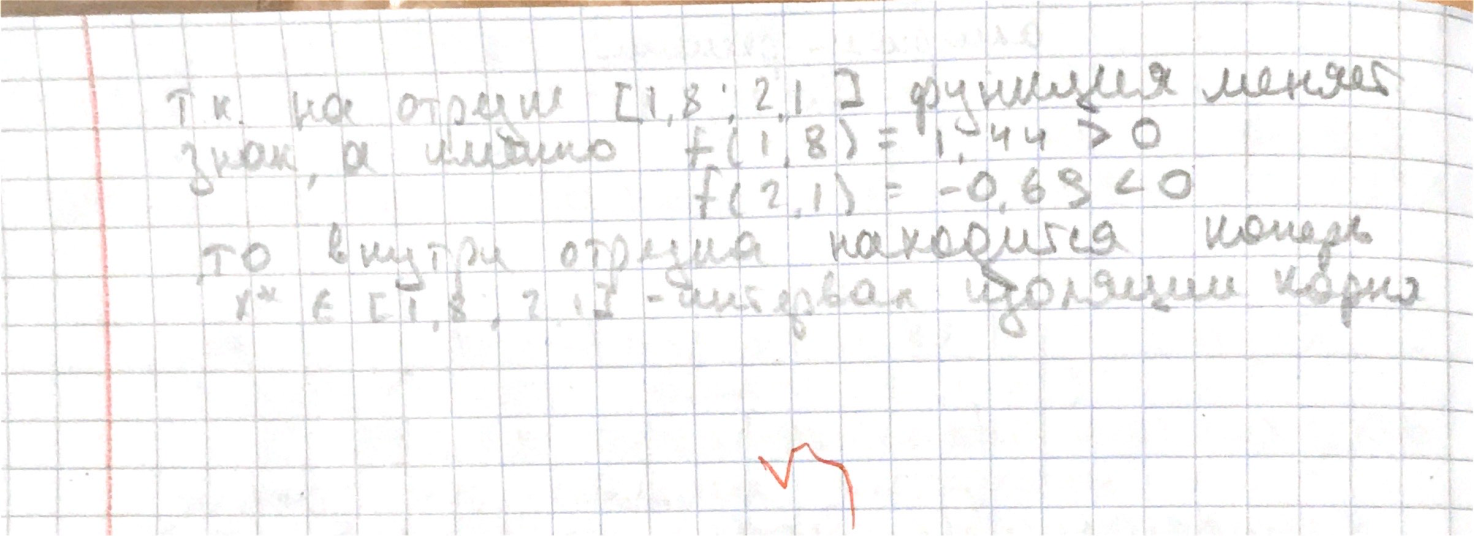 т.к. на отрезке [1,8; 2,1] функция меняет
знак, а именно f(1,8) = 1,44 > 0
f(2,1) = -0,69 < 0
то внутри отрезка находится корень
x* ∈ [1,8; 2,1] - интервал изоляции корня